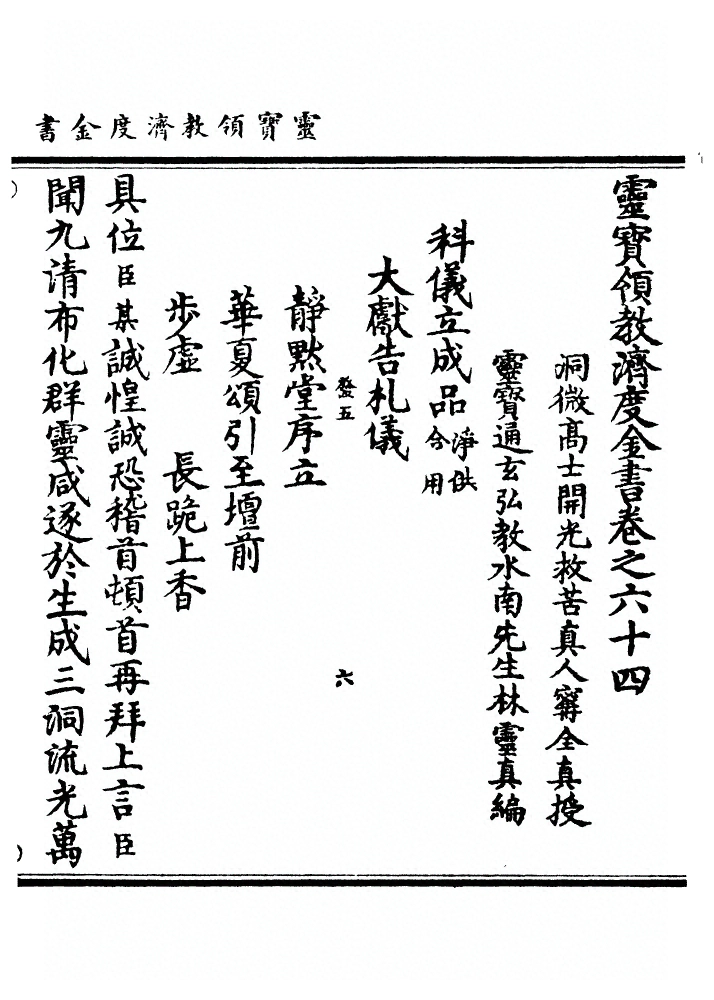 靈寳領教濟度金書
靈寳領教濟度金書卷之六十四
洞微高士開光救苦真人寗全真授
靈寳通玄弘教水南先生林靈真編
科儀立成品淨供合用
大獻告札儀
發五
六
靜默堂序立
華夏頌引至壇前
步虛　長跪上香
具位臣某誠惶誠恐稽首頓首再拜上言臣
聞九清布化群靈咸遂於生成三洞流光萬